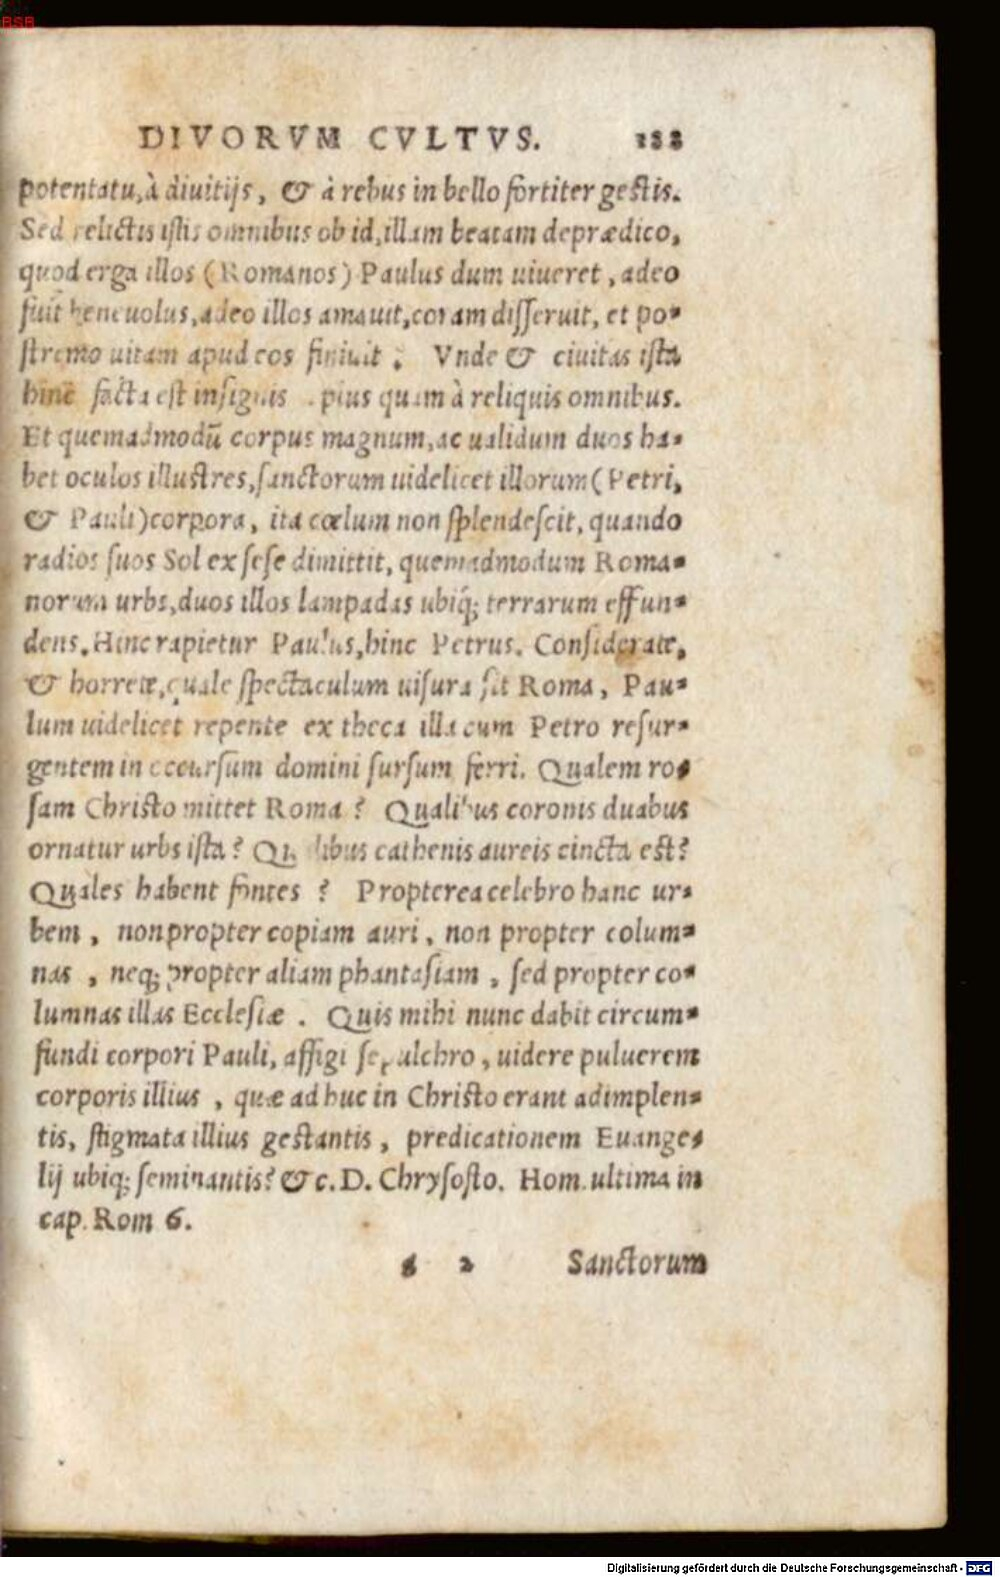 BSB
DIVORVM CVLTVS. 188
potentatu, à diuitijs, & à rebus in bello fortiter gestis.
Sed relictis istis omnibus ob id, illam beatam deprædico,
quod erga illos (Romanos) Paulus dum uiueret, adeo
fuit beneuolus, adeo illos amauit, coram disseruit, et po-
stremo uitam apud eos finiuit. Vnde & ciuitas ista
hinc facta est insignis plus quam à reliquis omnibus.
Et quemadmodū corpus magnum, ac ualidum duos ha-
bet oculos illustres, sanctorum uidelicet illorum (Petri,
& Pauli) corpora, ita cœlum non splendescit, quando
radios suos Sol ex sese dimittit, quemadmodum Roma-
norum urbs, duos illos lampadas ubiq; terrarum effun-
dens. Hinc rapietur Paulus, hinc Petrus. Considerate,
& horrete, quale spectaculum uisura sit Roma, Pau-
lum uidelicet repente ex theca illa cum Petro resur-
gentem in occursum domini sursum ferri. Qualem ro-
sam Christo mittet Roma? Qualibus coronis duabus
ornatur urbs ista? Qualibus cathenis aureis cincta est?
Quales habent fontes? Propterea celebro hanc ur-
bem, non propter copiam auri, non propter colum-
nas, neq; propter aliam phantasiam, sed propter co-
lumnas illas Ecclesiæ. Quis mihi nunc dabit circum-
fundi corpori Pauli, affigi sepulchro, uidere puluerem
corporis illius, quæ ad huc in Christo erant adimplen-
tis, stigmata illius gestantis, predicationem Euange-
lij ubiq; seminantis? &c. D. Chrysosto. Hom. ultima in
cap. Rom 6.
2 Sanctorum
Digitalisierung gefördert durch die Deutsche Forschungsgemeinschaft - DFG